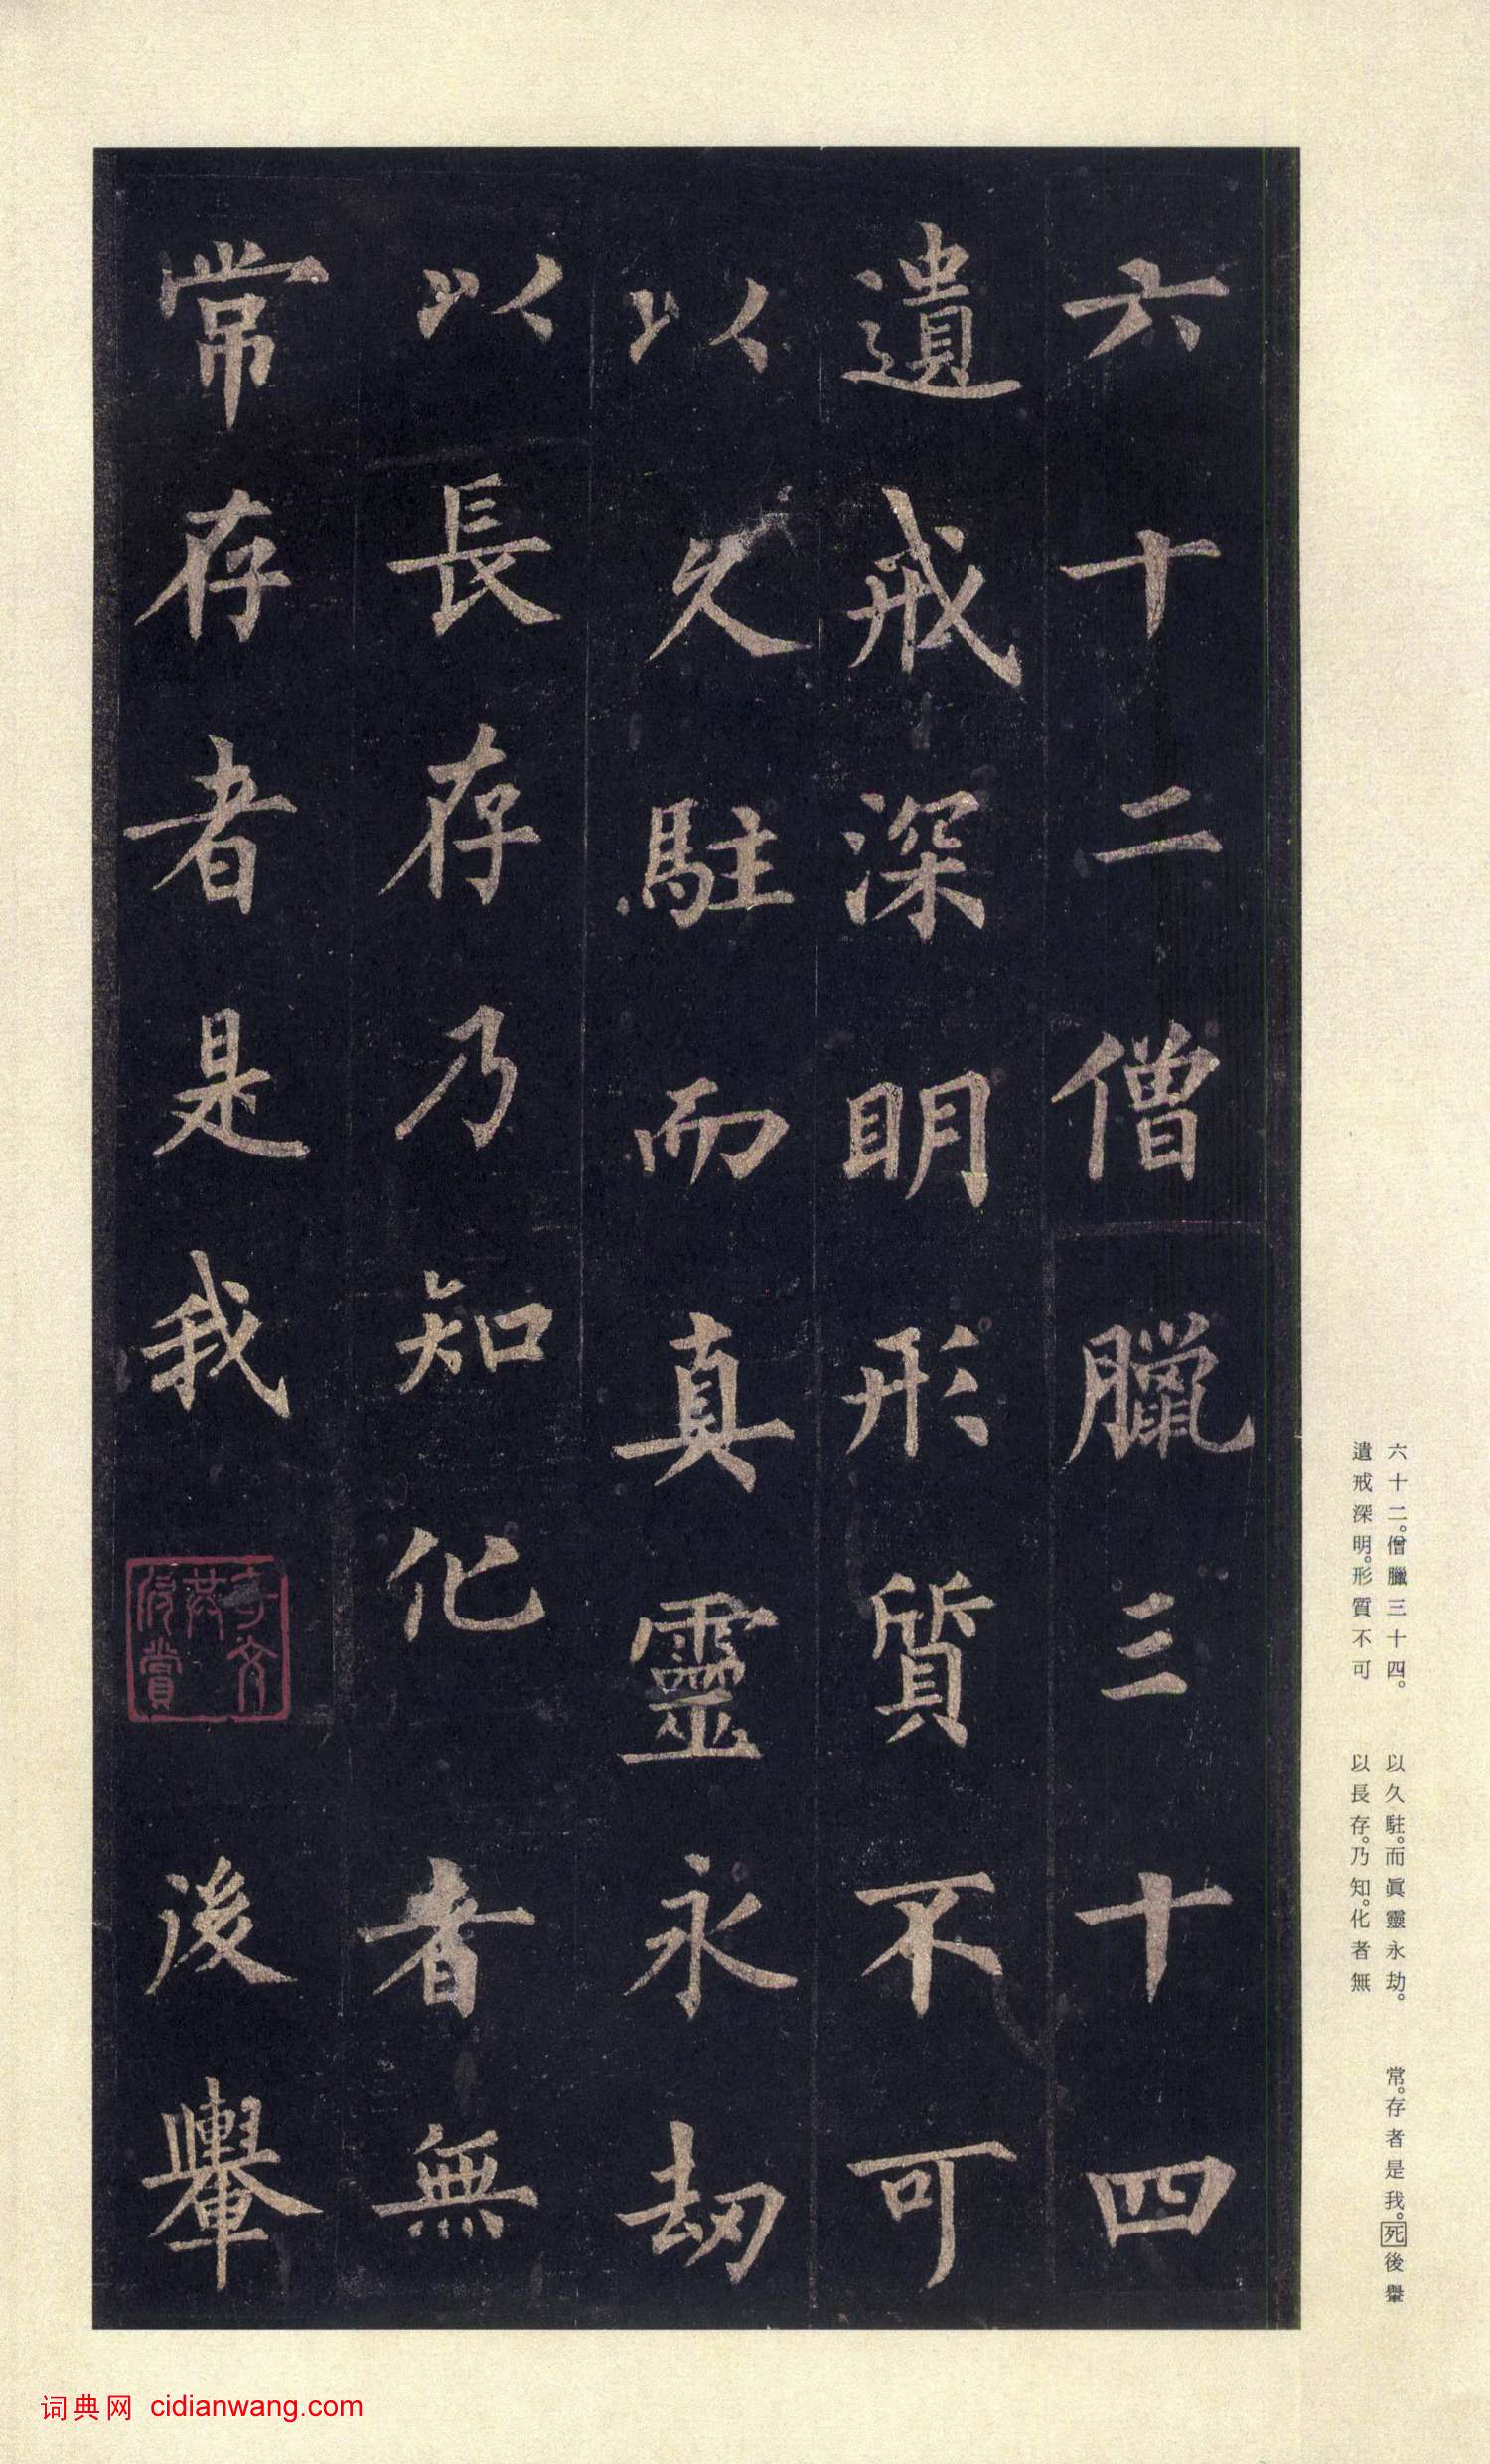 六十二僧臘三十四
遺戒深明形質不可
以久駐而真靈永劫
以長存乃知化者無
常存者是我後轝
六十二。僧臘三十四。
遺戒深明。形質不可
以久駐。而眞靈永劫。
以長存。乃知。化者無
常。存者是我。死後轝
词典网 cidianwang.com